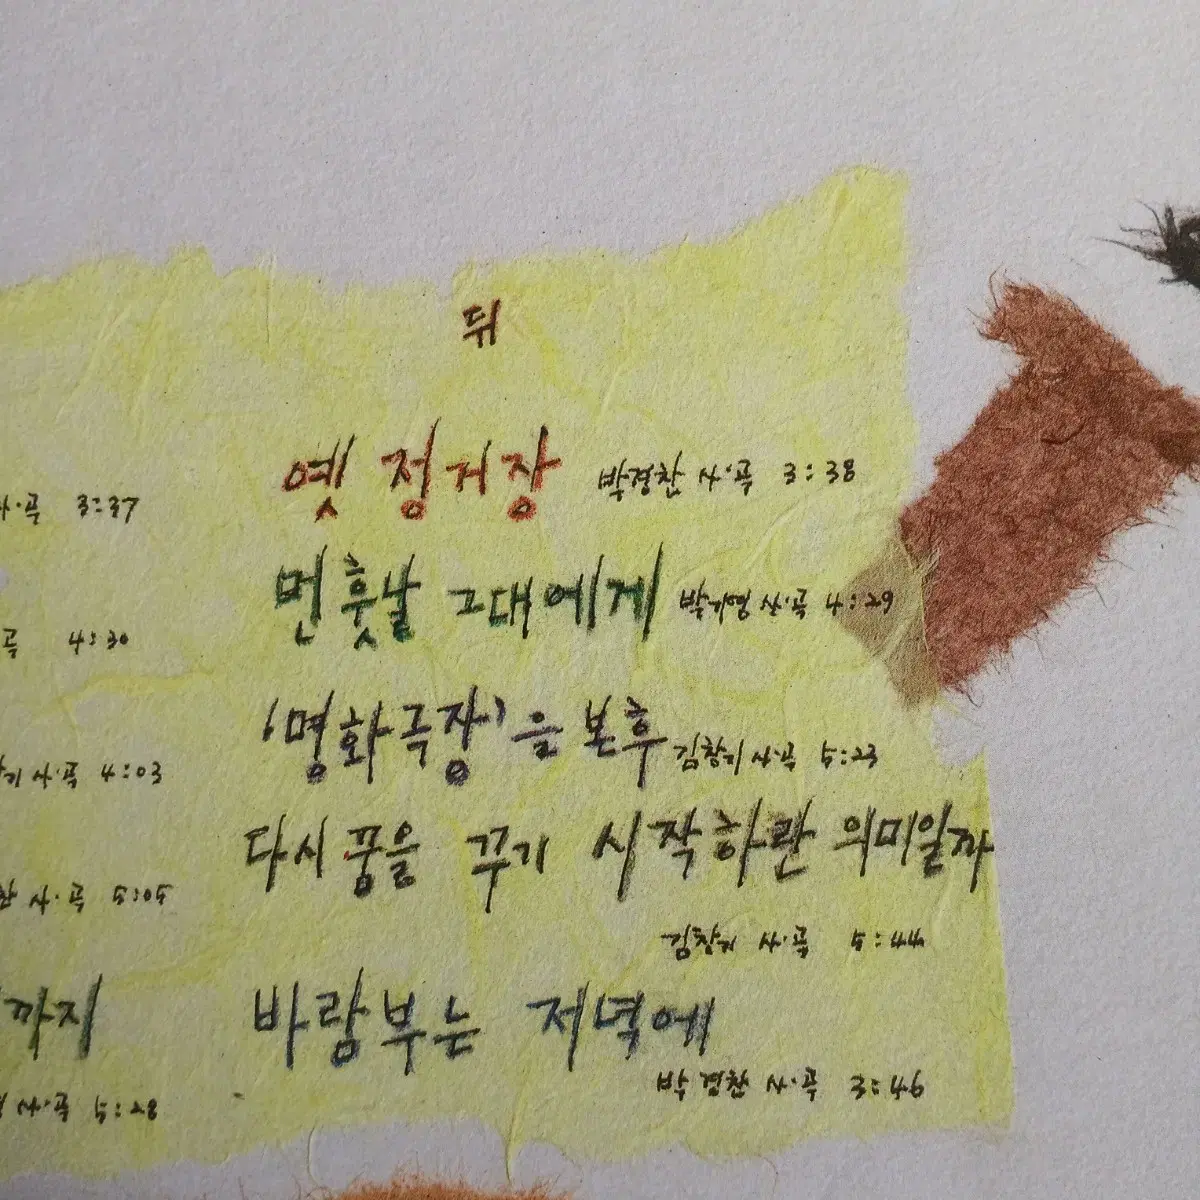 뒤
옛 정거장 박경찬 사·곡 3:38
먼훗날 그대에게 박기영 사·곡 4:29
'명화극장'을 본후 김창기 사·곡 5:23
다시 꿈을 꾸기 시작하란 의미일까
김창기 사·곡 5:44
바람부는 저녁에
박경찬 사·곡 3:46
사·곡 3:37
곡 4:30
기 사·곡 4:03
찬 사·곡 5:05
까지
사·곡 5:28